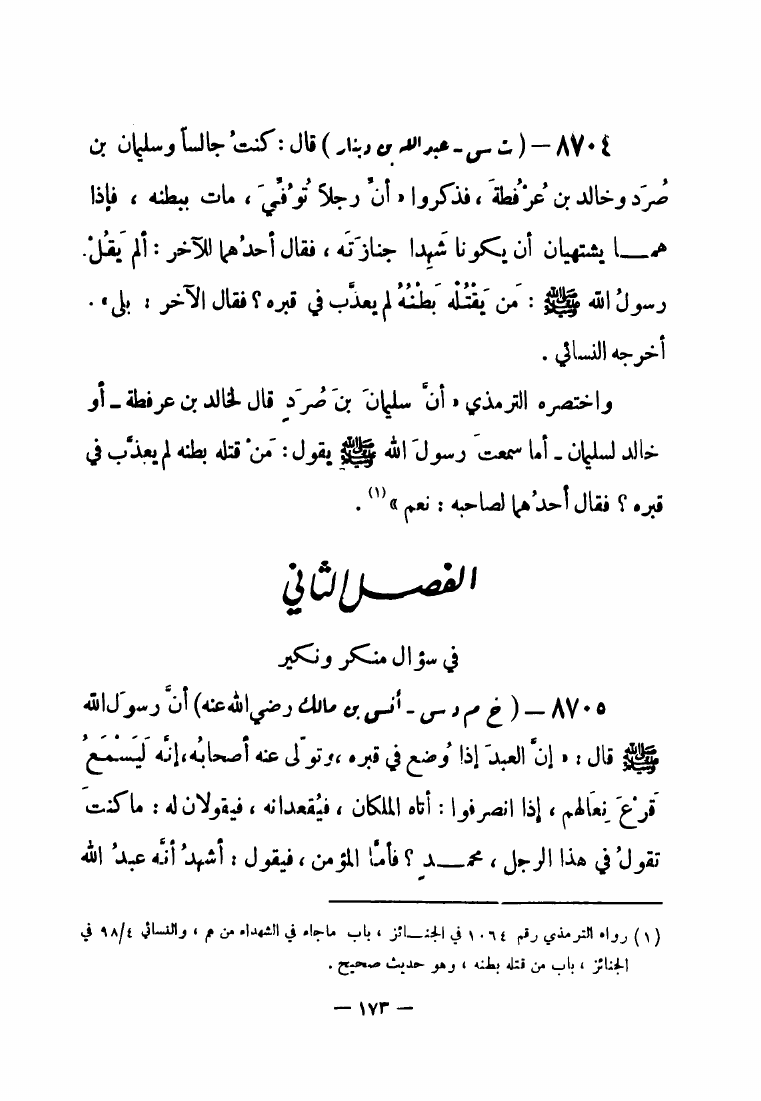 ٨٧٠٤ – ( ت س - عبد الله بن دينار ) قال : كنتُ جالساً وسليمان بن
صُرَد وخالد بن عُرْفُطةَ ، فذكروا « أنَّ رجلاً تُوُفِّيَ ، مات ببطنه ، فإذا
همــا يشتهيان أن يكونا شَهِدا جنازَتَه ، فقال أحدُهما للآخر : ألم يَقُلْ
رسولُ الله ﷺ : مَن يَقْتُلْه بَطْنُهُ لم يعذَّب في قبره ؟ فقال الآخر : بلى » .
أخرجه النسائي .
واختصره الترمذي « أنَّ سليمانَ بنَ صُرَدٍ قال لخالد بن عرفطة - أو
خالد لسليمان - أما سمعتَ رسولَ الله ﷺ يقول : مَنْ قتله بطنه لم يعذَّب في
قبره ؟ فقال أحدُهما لصاحبه : نعم » (١) .
الفصــل الثاني
في سؤال منكر ونكير
٨٧٠٥ – ( خ م د س - أنس بن مالك رضي الله عنه ) أنَّ رسولَ الله
ﷺ قال : « إنَّ العبدَ إذا وُضع في قبره ، وتولّى عنه أصحابُه ، إنَّه لَيَسْمَعُ
قَرْعَ نِعَالهم ، إذا انصرفوا : أتاه الملكان ، فيُقعدانه ، فيقولان له : ما كنتَ
تقولُ في هذا الرجل ، محمــدٍ ؟ فأمَّا المؤمن ، فيقول : أشهدُ أنَّه عبدُ الله
(١) رواه الترمذي رقم ١٠٦٤ في الجنــائز ، باب ماجاء في الشهداء من م ، والنسائي ٩٨/٤ في
الجنائز ، باب من قتله بطنه ، وهو حديث صحيح .
– ١٧٣ –